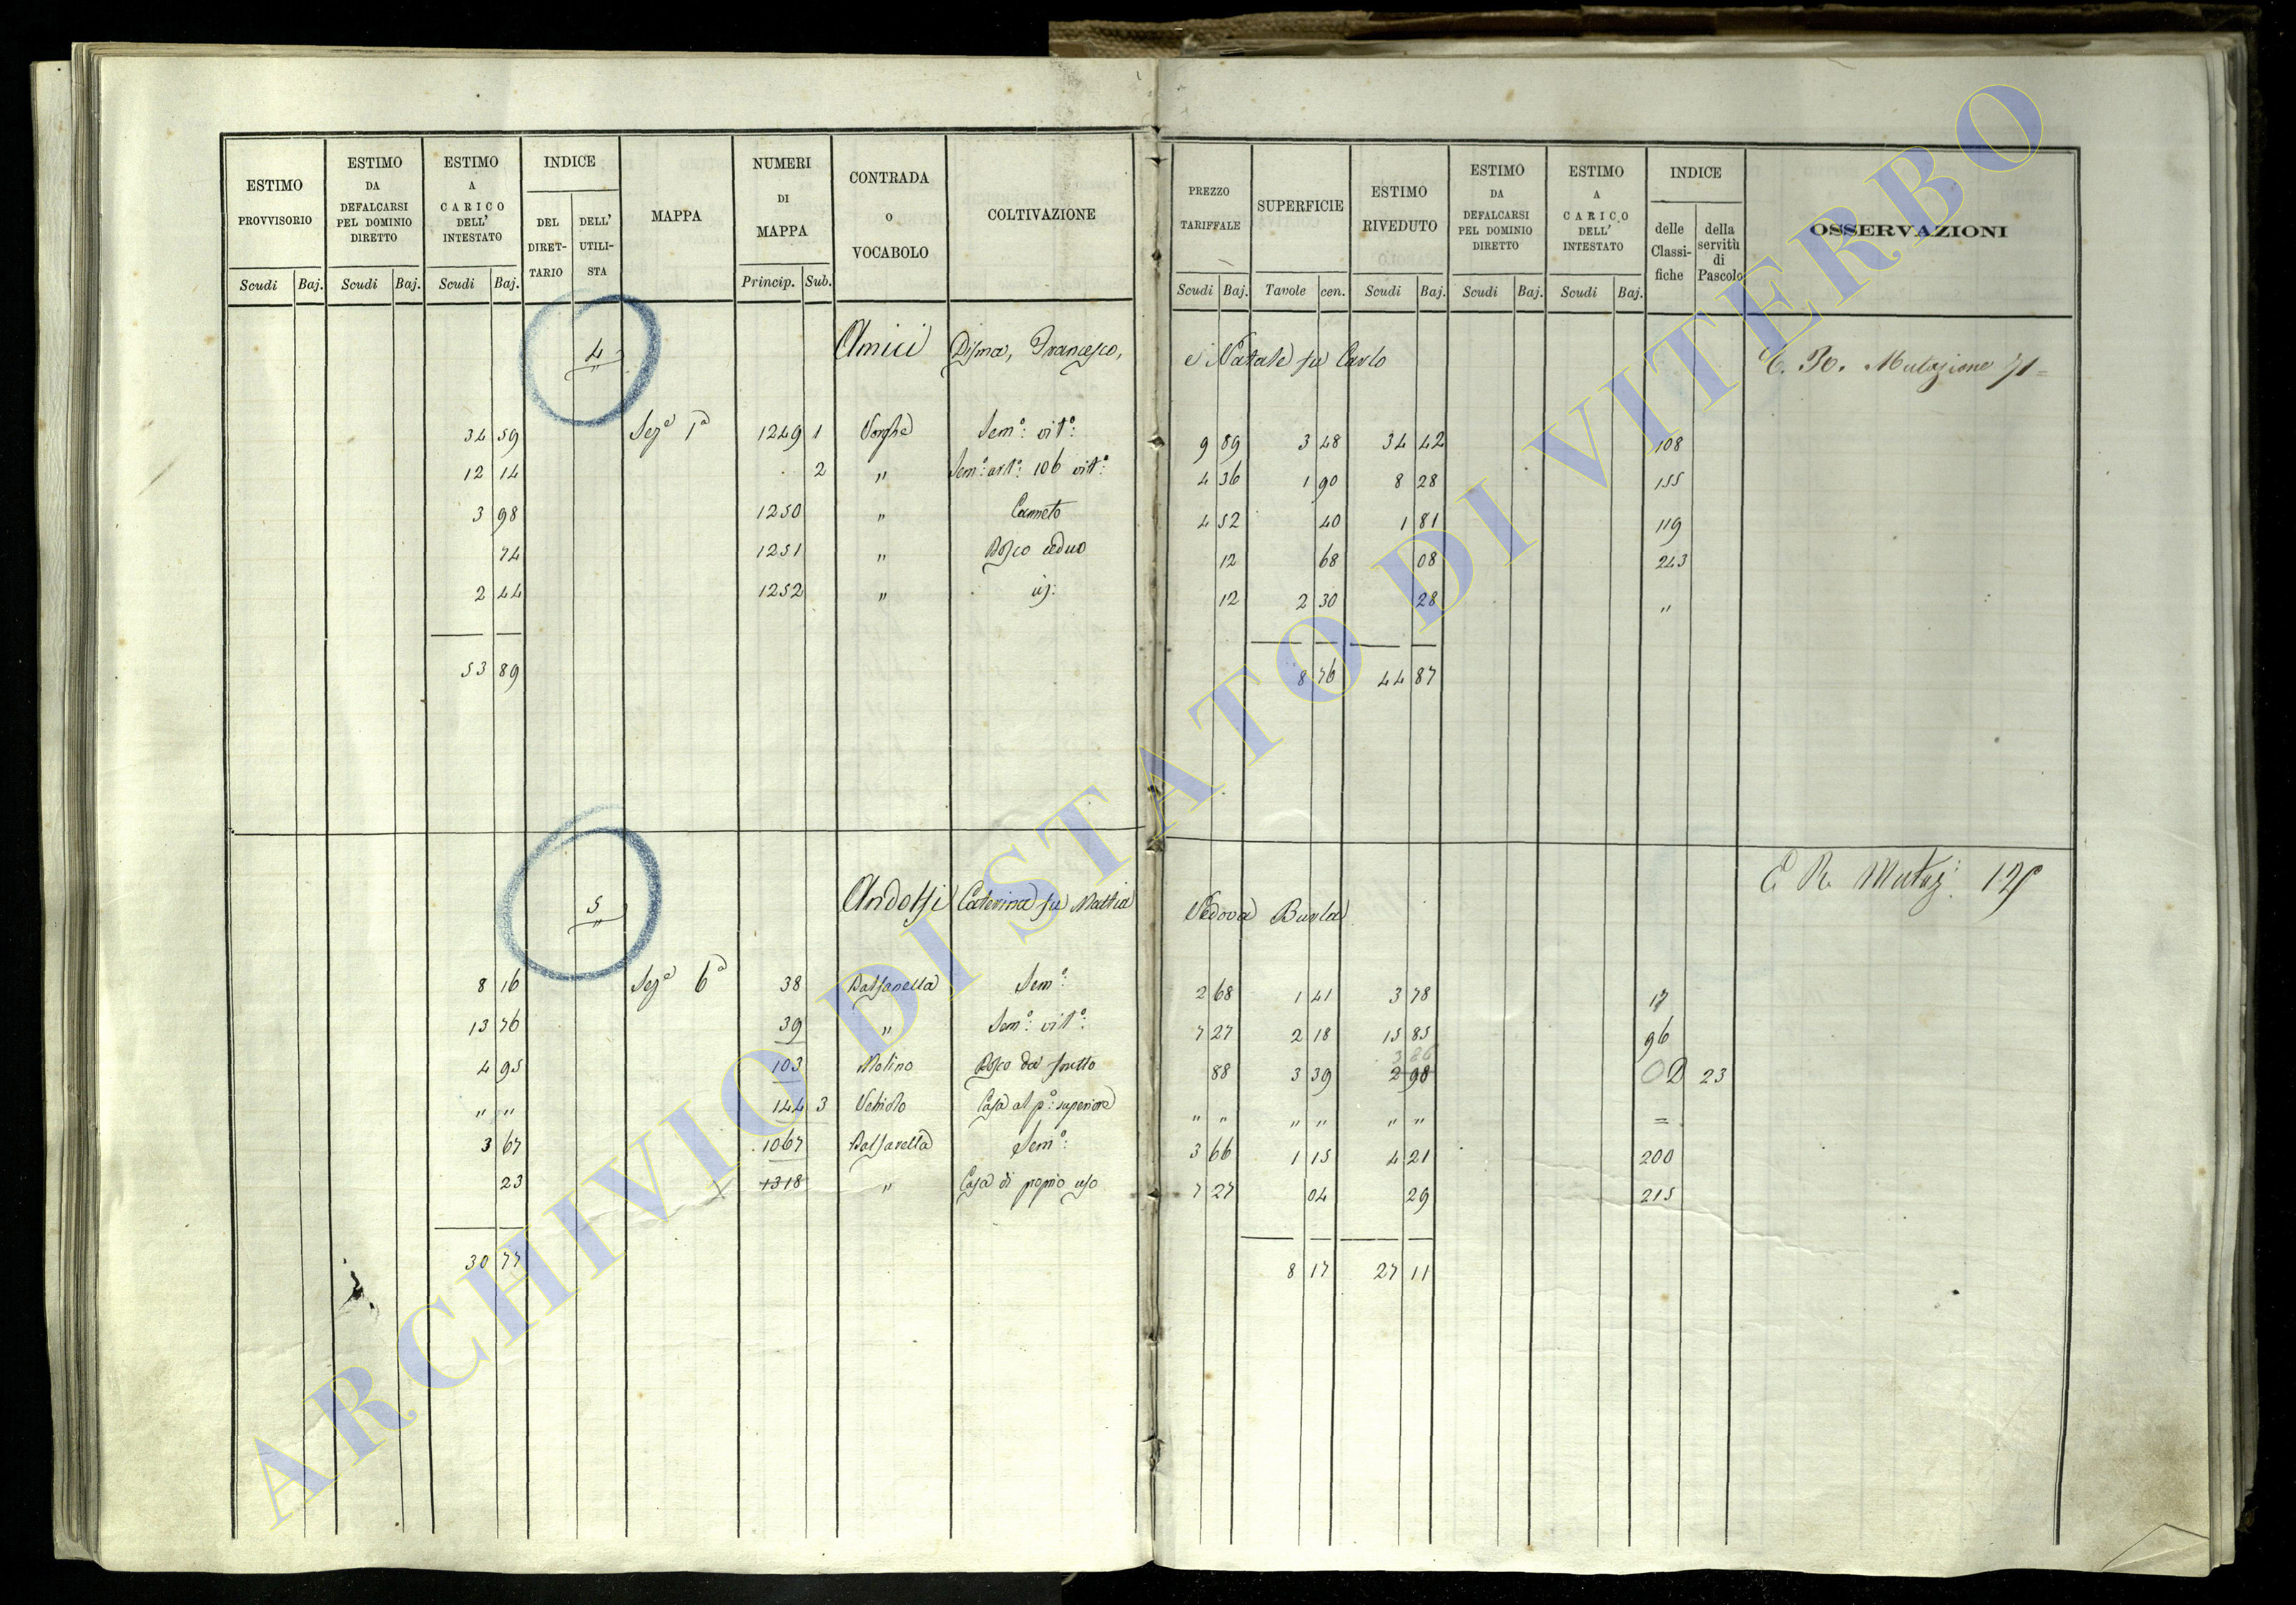 ESTIMO PROVVISORIO | ESTIMO DA DEFALCARSI PEL DOMINIO DIRETTO | ESTIMO A CARICO DELL' INTESTATO | INDICE DEL DIRETTARIO | DELL' UTILISTA | MAPPA | NUMERI DI MAPPA | CONTRADA O VOCABOLO | COLTIVAZIONE | PREZZO TARIFFALE | SUPERFICIE | ESTIMO RIVEDUTO | ESTIMO DA DEFALCARSI PEL DOMINIO DIRETTO | ESTIMO A CARICO DELL' INTESTATO | INDICE delle Classifiche | della servitù di Pascolo | OSSERVAZIONI
Scudi Baj. Scudi Baj. Scudi Baj. Princip. Sub. Scudi Baj. Tavole cen. Scudi Baj. Scudi Baj. Scudi Baj.
4 Amici Disma, Francesco, e Natale fu Carlo Mutazione 71
34 59 Sezᵉ 1ª 1249 1 Semº: vitº: 9 89 3 48 34 42 108
12 14 2 " Semº: artº: 106 vitº: 4 36 1 90 8 28 155
3 98 1250 " Canneto 4 52 40 1 81 119
74 1251 " Bosco ceduo 12 68 08 243
2 44 1252 " 12 2 30 28 "
53 89 8 76 44 87
5 Andolfi Caterina fu Mattia Vedova Burla Mutaz:
8 16 Sezᵉ 6ª 38 Balsanella Semº: 2 68 1 41 3 78 17
13 76 39 " Semº: vitº: 7 27 2 18 15 85 96
4 95 103 Molino Bosco da frutto 88 3 39 2 98 D 23
" " 144 3 Casa al pº: superiore " " " " " " =
3 67 1067 Balsanella Semº: 3 66 1 15 4 21 200
23 1318 " Casa di proprio uso 7 27 04 29 215
30 77 8 17 27 11
ARCHIVIO DI STATO DI VITERBO